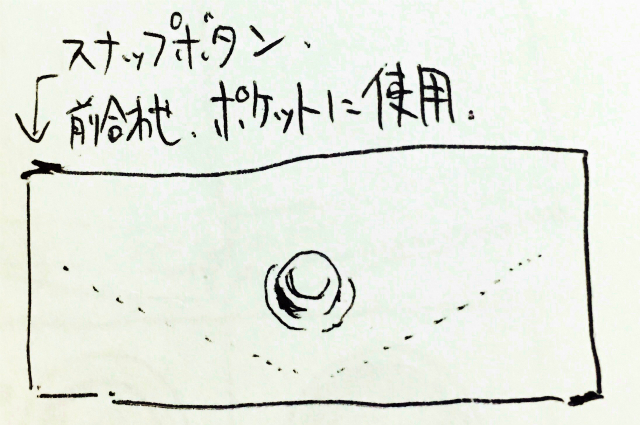 スナップボタン.
前合わせ、ポケットに使用.